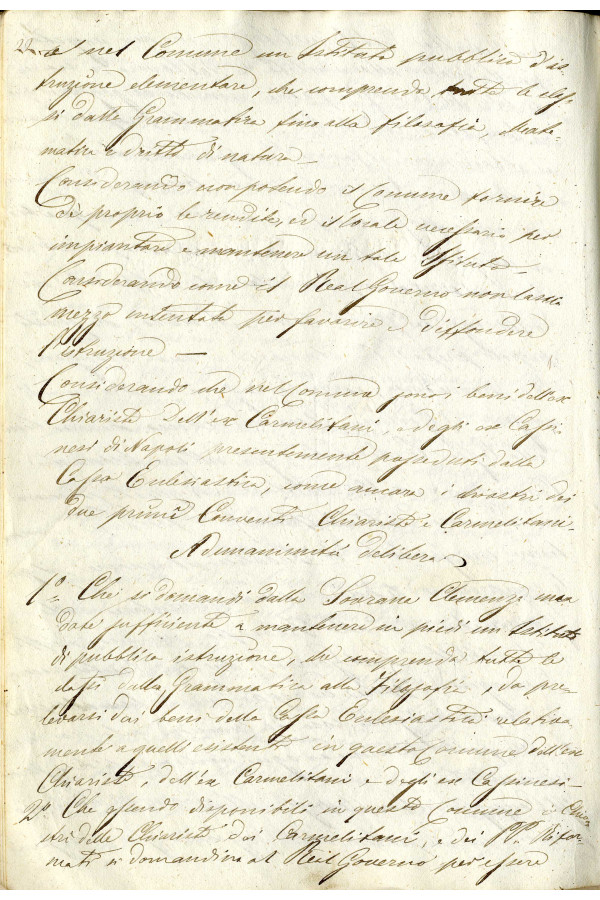 22
nel Comune un Istituto pubblico d'is-
truzione elementare, che comprenda tutte le clas-
si dalla Grammatica fino alla filosofia, Mate-
matica e dritto di natura —
Considerando non potendo il Comune fornire
di proprio le rendite, ed il locale necessario per
impiantare e mantenere un tale Istituto —
Considerando come il Real Governo non lascia
mezzo intentato per favorire e diffondere
l'Istruzione —
Considerando che nel Comune sono i beni dell'ex
Chiariste dell'ex Carmelitani, e degli ex Cassi-
nesi di Napoli presentemente posseduti dalla
Cassa Eclesiastica, come ancora i chiostri dei
due primi Conventi Chiariste e Carmelitani —
Ad unanimità delibera
1.º Che si domandi dalla Sovrana Clemenza una
dote sufficiente a mantenere in piedi un Istituto
di pubblica istruzione, che comprenda tutte le
classi dalla Grammatica alla Filosofia, da pre-
levarsi dai beni della Cassa Eclesiastica relativa-
mente a quelli esistenti in questo Comune dell'ex
Chiariste, dell'ex Carmelitani e degli ex Cassinesi —
2.º Che essendo disponibili in questo Comune i Chios-
tri delle Chiariste, dei Carmelitani, e dei PP. Rifor-
mati si domandino al Real Governo per essere